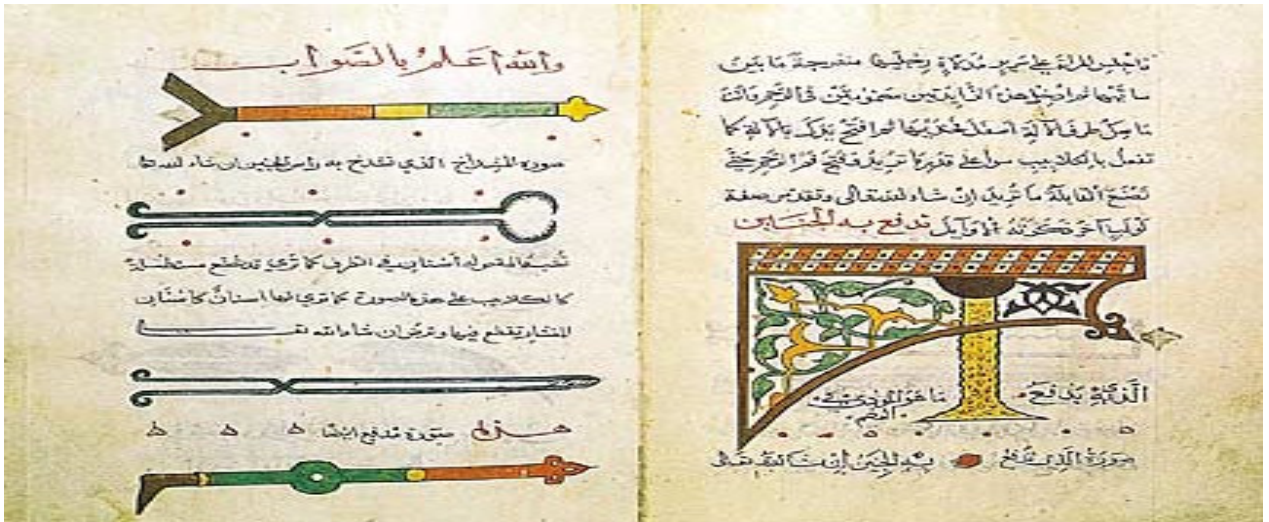 فاجلس المراة على سرير مدلاة رجليها منفرجة ما بين
ساقيها ثم ادخل هذين الزايدتين مضمومتين في الرحم وانت
ماسك طرف الآلة اسفل فخذيها ثم افتح يدك بالآلة كما
تفعل بالكلاليب سوا على قدر ما تريد فتح فم الرحم حتى
تصنع القابلة ما تريد ان شاء الله تعالى صفة
لولب آخر ذكرته الاوايل تدفع به الجنين
الذي يدفع ما هو
صورة الذي تدفع به الجنين ان شا الله تعالى
والله اعلم بالصواب
صورة المشداخ الذي تشدخ به راس الجنين ان شاء الله تعا
اسنان في الطرف كما ترى وقد تصنع مستطيلة
كالكلاليب على هذه الصورة كما ترى لها اسنان كاسنان
المنشار يقطع بها وترض ان شاء الله تعا
هذه صورة مدفع ايضا